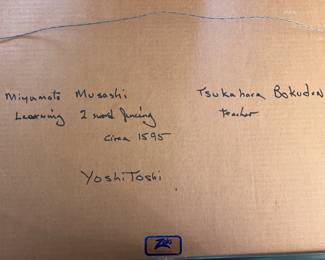 Miyamoto Musashi
Learning 2 sword fencing
circa 1595
Tsukahara Bokuden
teacher
YoshiToshi